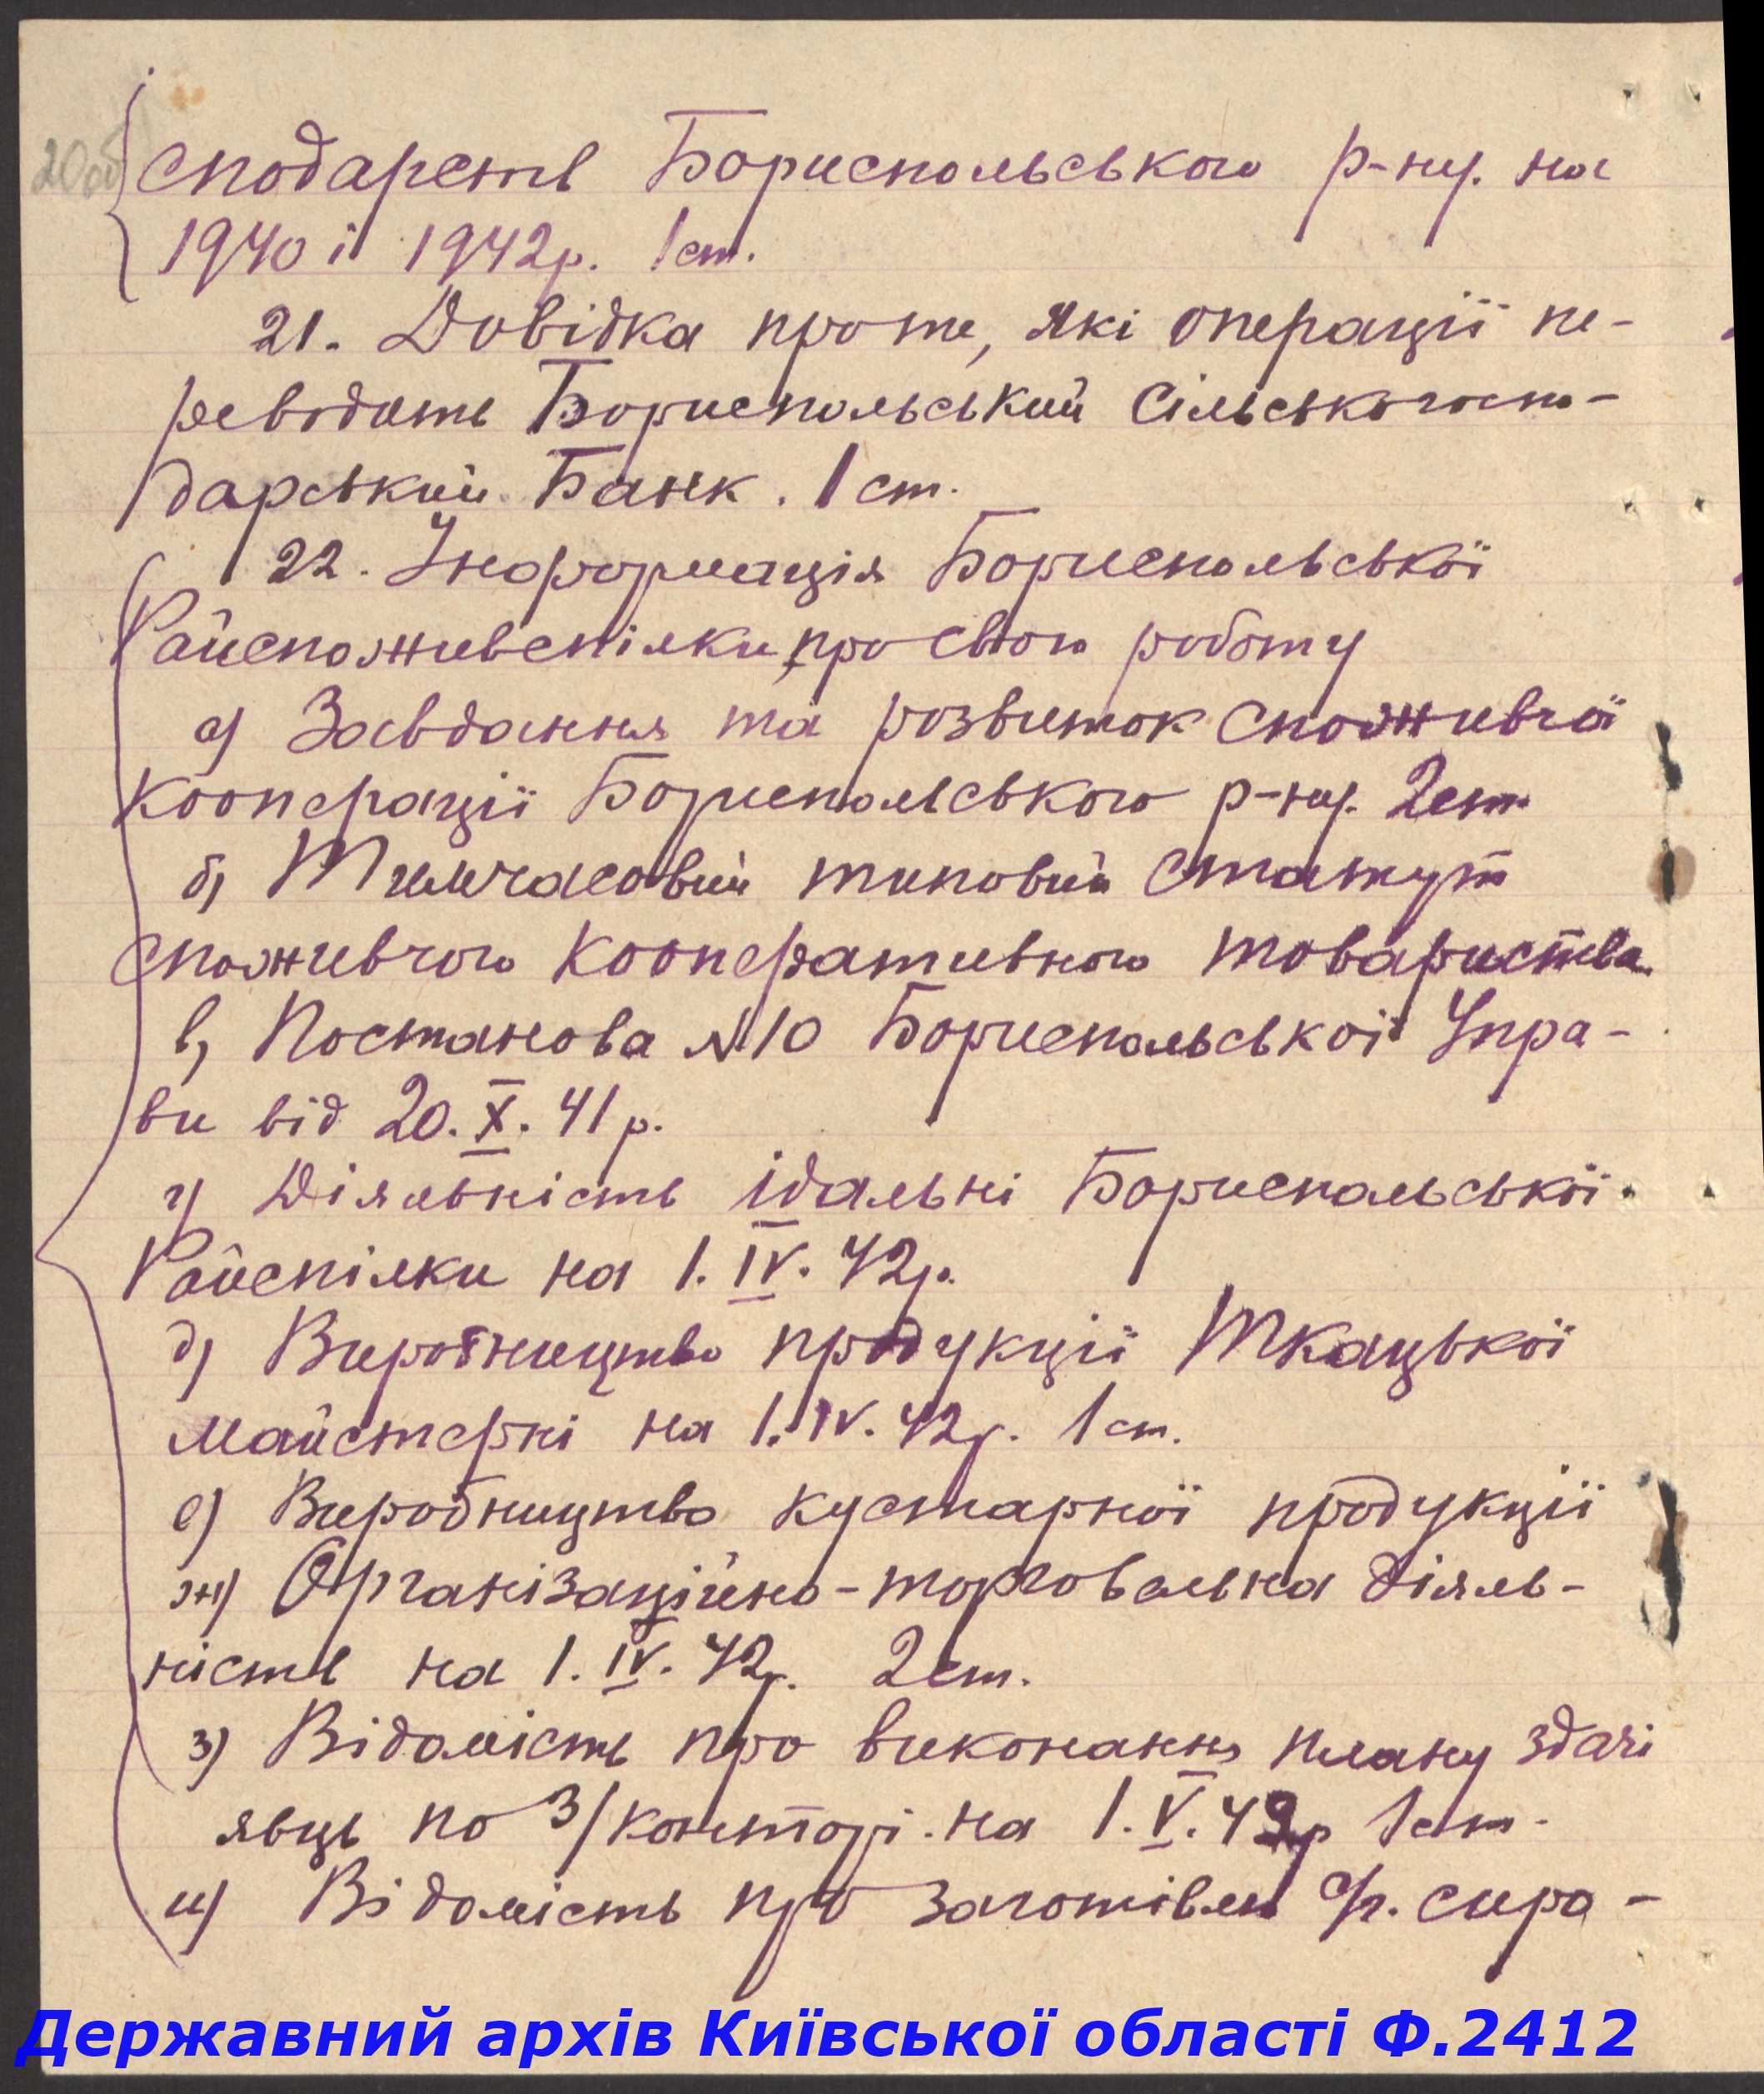 20об
сподарств Бориспольського р-ну. на
1940 і 1942р. 1ст.
21. Довідка про те, які операції пе-
реводить Бориспольський Сільськогоспо-
дарський Банк. 1ст.
22. Інформація Бориспольської
Райспоживспілки про свою роботу
а) Завдання та розвиток споживчої
кооперації Бориспольського р-ну. 2ст.
б) Тимчасовий типовий статут
споживчого кооперативного товариства.
в) Постанова №10 Бориспольської Упра-
ви від 20.X.41р.
г) Діяльність їдальні Бориспольської
Райспілки на 1.IV.42р.
д) Виробництво продукції Ткацької
майстерні на 1.IV.42р. 1ст.
е) Виробництво кустарної продукції
ж) Організаційно-торговельна діяль-
ність на 1.IV.42р. 2ст.
з) Відомість про виконання плану здачі
яєць по з/конторі на 1.V.42р 1ст.
и) Відомість про заготівлю с/г. сиро-
Державний архів Київської області Ф.2412